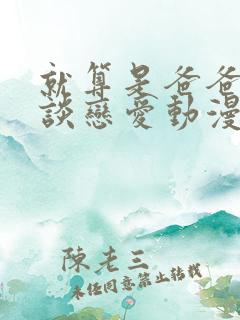 就算是爸爸
談戀愛動漫
陳老三
未经同意禁止转载